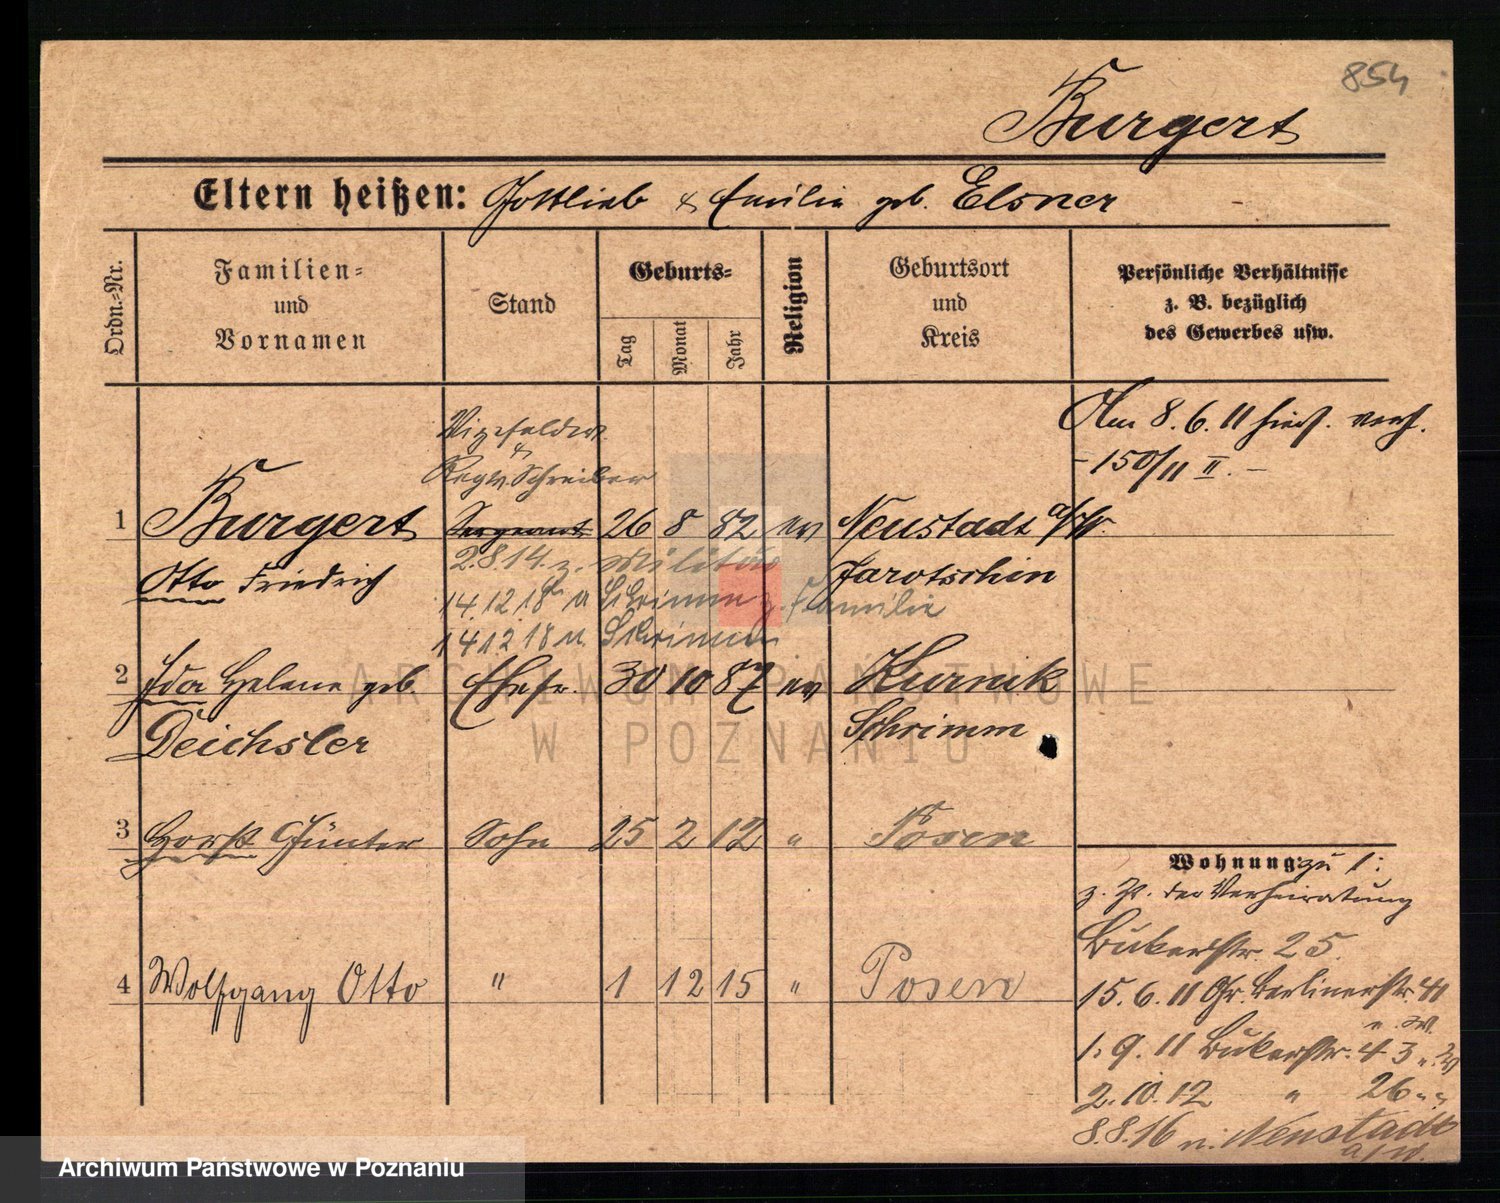 854
Burgert
Eltern heißen: Gottlieb & Emilie geb. Elsner
Ordn.-Nr.
Familien-
und
Vornamen
Stand
Geburts-
Tag
Monat
Jahr
Religion
Geburtsort
und
Kreis
Persönliche Verhältnisse
z. B. bezüglich
des Gewerbes usw.
Am 8.6.11 hier. verh.
- 150/11 II. -
Vizefeldw.
&
Regts. Schreiber
1 Burgert Sergeant 26 8 82 ev Neustadt a/W.
Otto Friedrich 2.8.14. z. Militär Jarotschin
14.12.18 n Schrimm z. Familie
14.12.18 n. Schrimm
2 Ida Helene geb. Ehefr. 30 10 87 ev Kurnik
Deichsler Schrimm
3 Horst Günter Sohn 25 2 12 " Posen
4 Wolfgang Otto " 1 12 15 " Posen
Wohnung: zu 1:
z. Zt. der Verheiratung
Bukerstr. 25.
15.6.11 Gr. Berlinerstr. 41
1.9.11 Bukerstr. 43
2.10.12 " 26
8.8.16 n. Neustadt
a/W.
ARCHIWUM PAŃSTWOWE
W POZNANIU
Archiwum Państwowe w Poznaniu